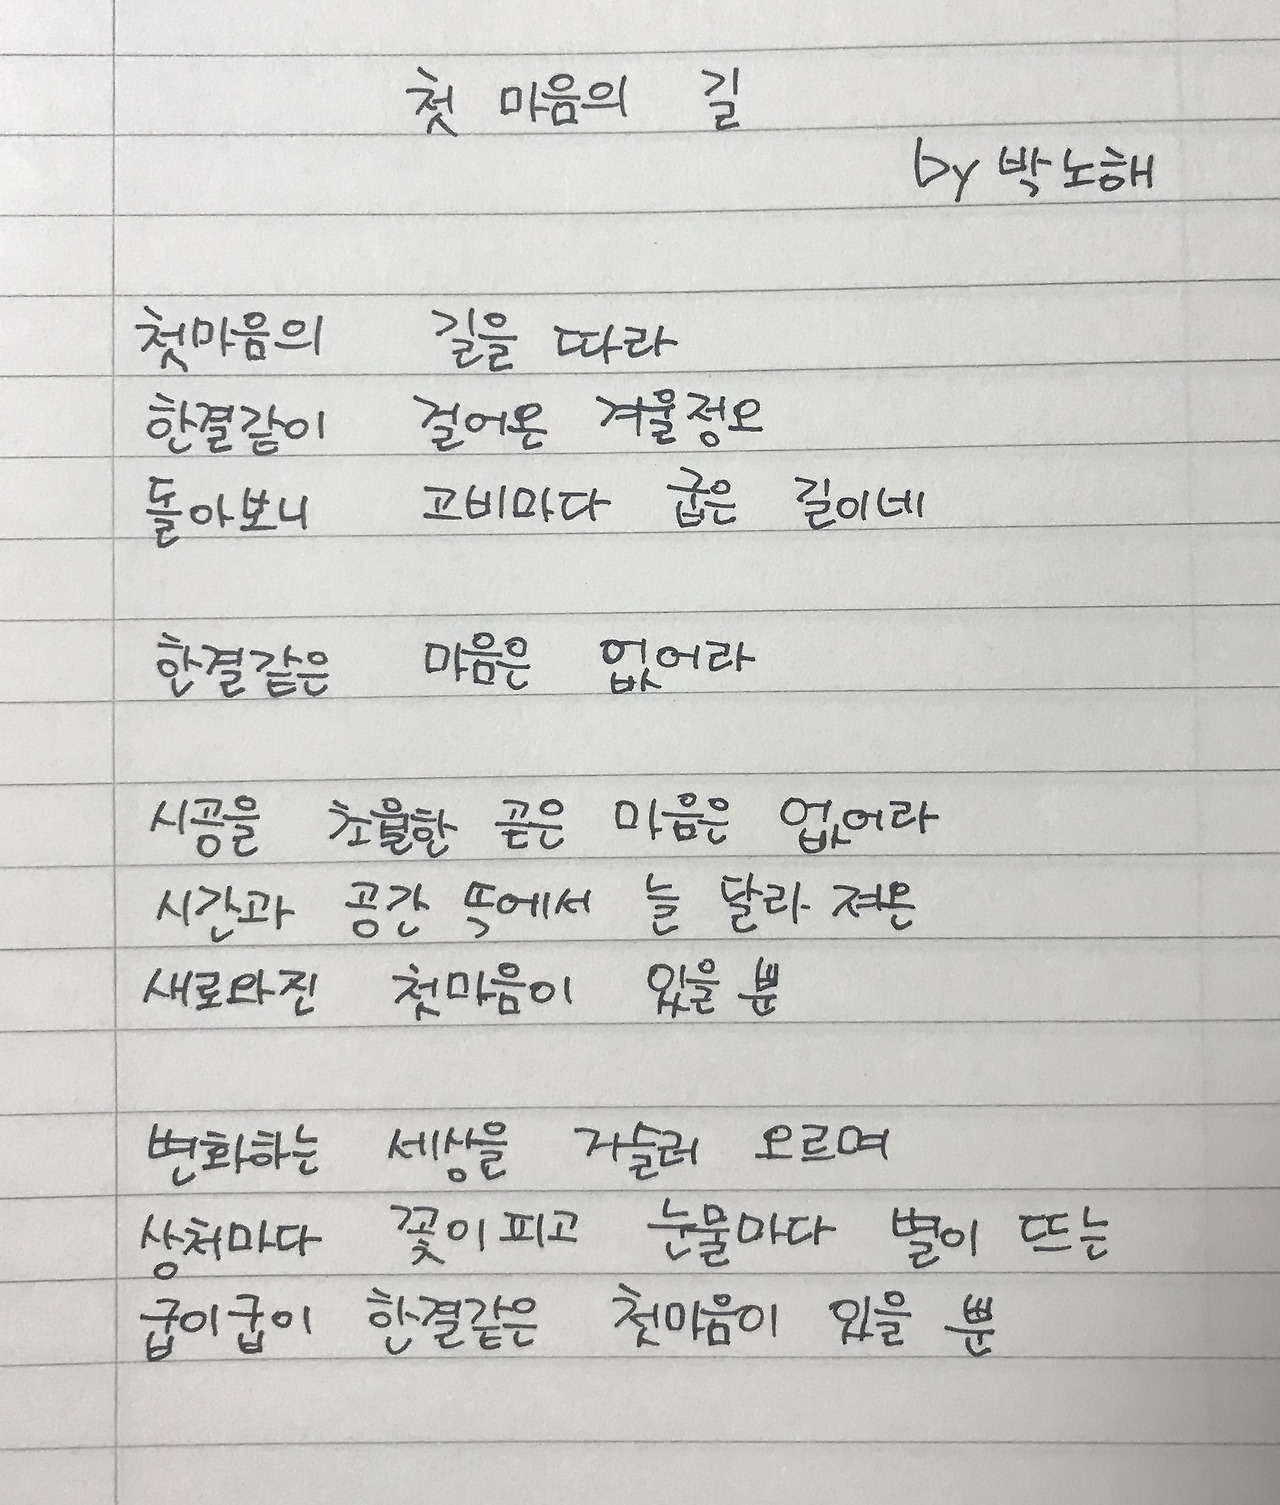 첫 마음의 길
by 박노해
첫마음의 길을 따라
한결같이 걸어온 겨울정오
돌아보니 고비마다 굽은 길이네
한결같은 마음은 없어라
시공을 초월한 곧은 마음은 없어라
시간과 공간 뚝에서 늘 달라 져온
새로와진 첫마음이 있을 뿐
변화하는 세상을 거슬러 오르며
상처마다 꽃이 피고 눈물마다 별이 뜨는
굽이굽이 한결같은 첫마음이 있을 뿐